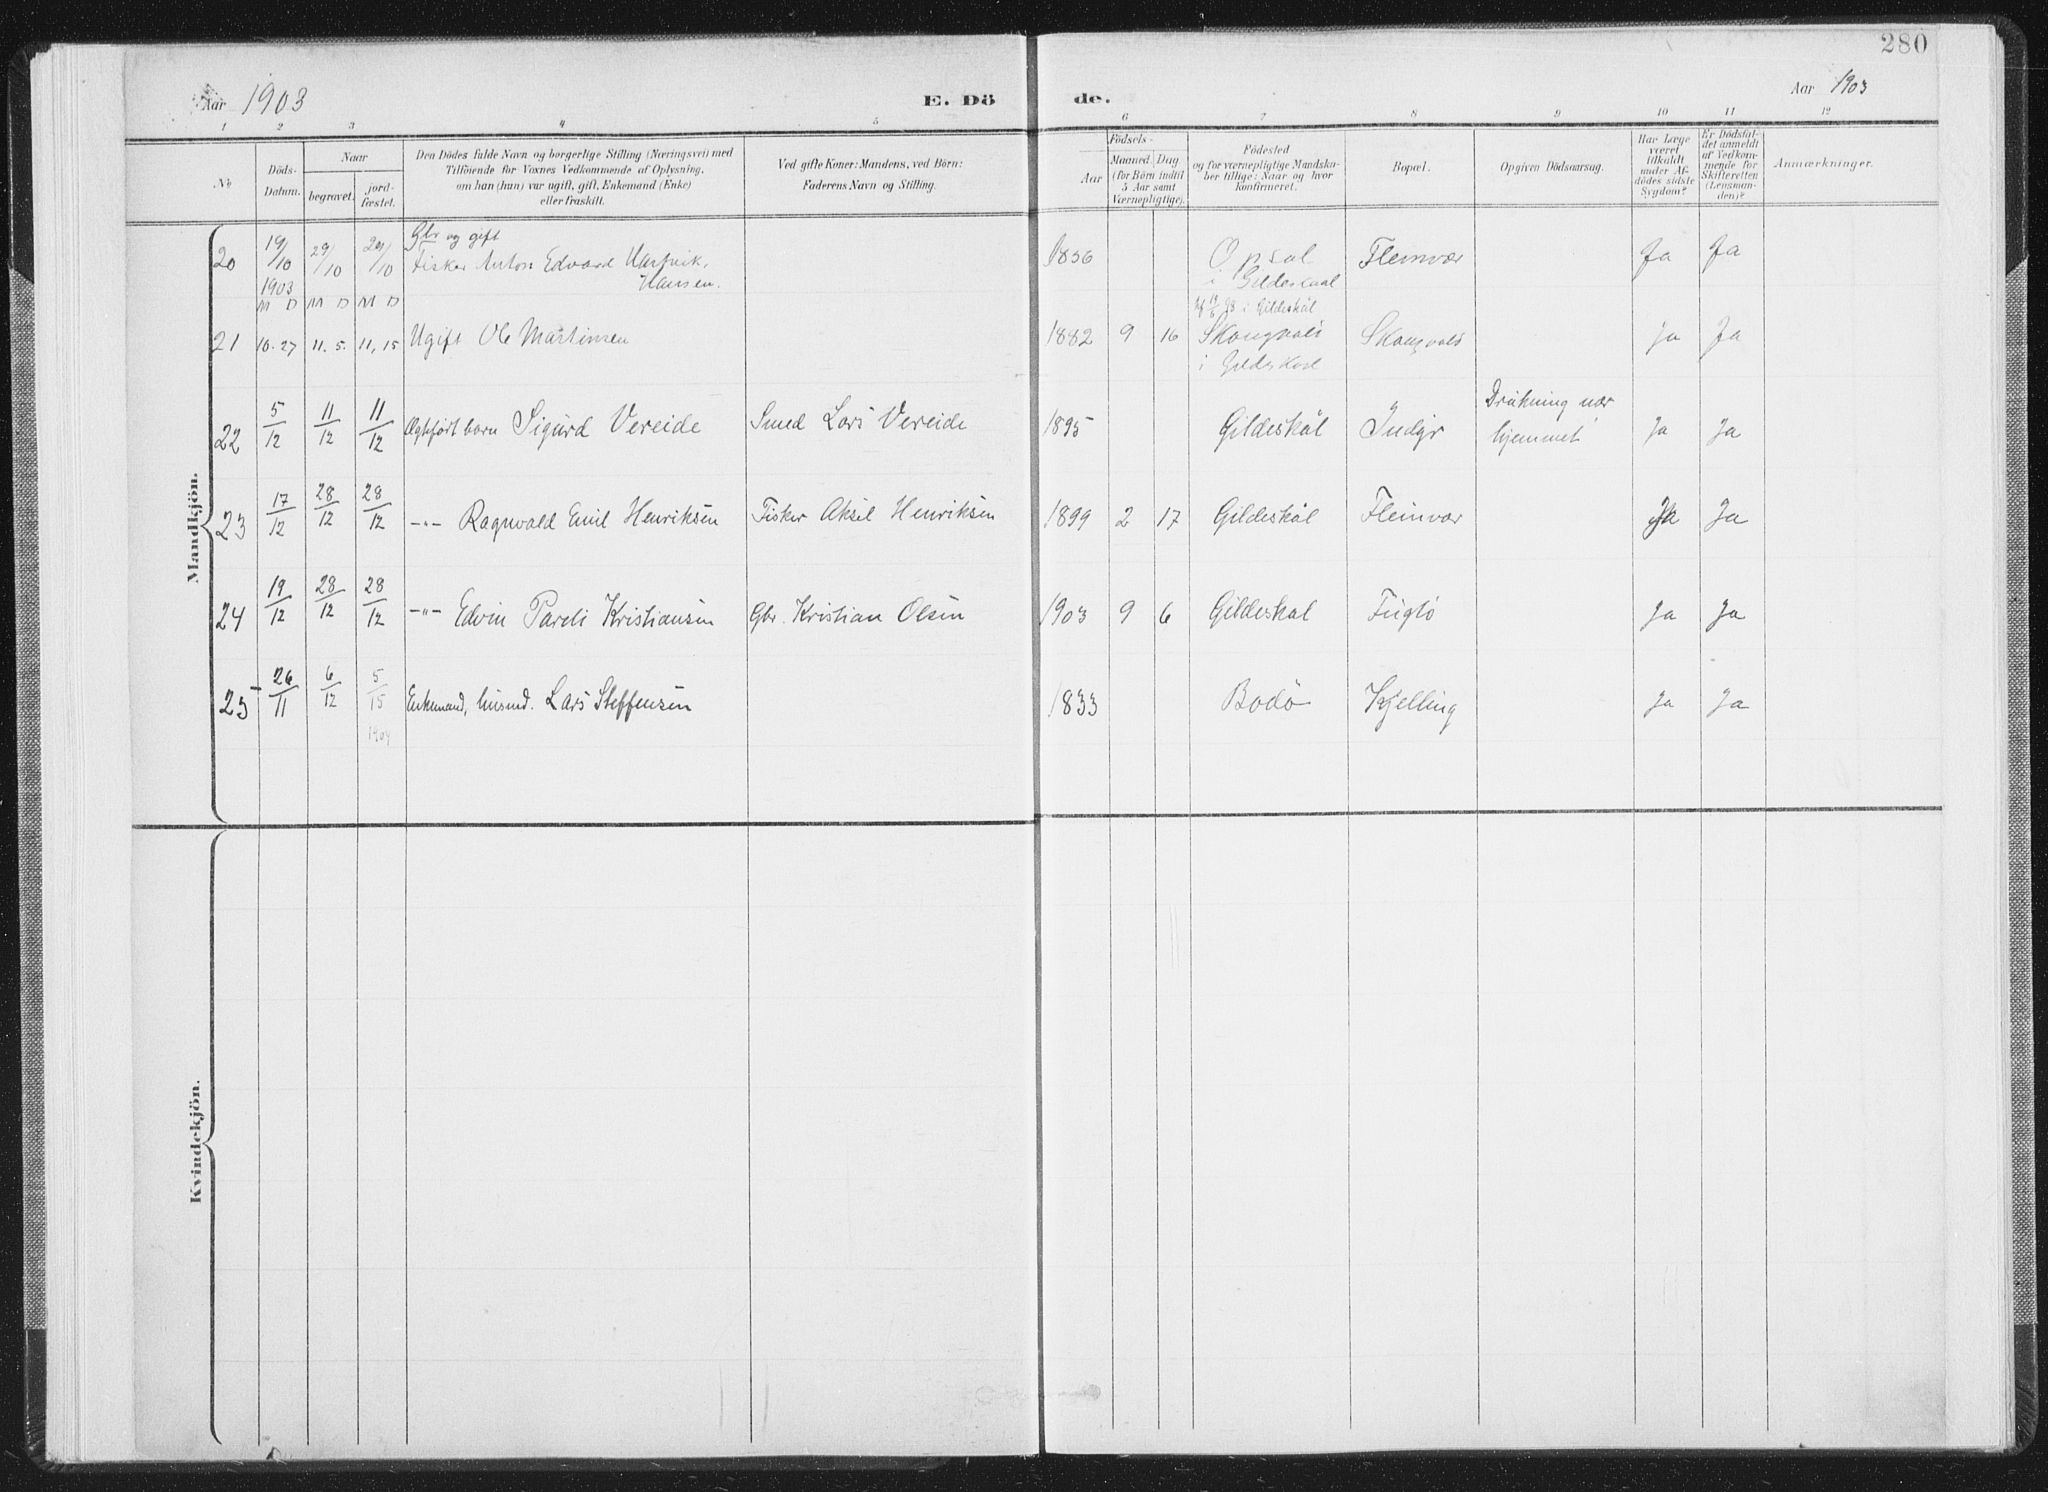 280
Aar 1903
E. Dö
de.
Aar 1903
1 2 3 4 5 6 7 8 9 10 11 12
No
Döds-Datum.
Naar
begravet.
jord-fæstet.
Den Dödes fulde Navn og borgerlige Stilling (Næringsvei) med
Tilföiende for Voxnes Vedkommende af Oplysning,
om han (hun) var ugift, gift, Enkemand (Enke)
eller fraskilt.
Ved gifte Koner: Mandens, ved Börn:
Faderens Navn og Stilling.
Födsels-
Aar
Maaned. Dag
(for Börn indtil
5 Aar samt
Værnepligtige).
Födested
og for værnepligtige Mandska-
ber tillige: Naar og hvor
konfirmeret.
Bopæl.
Opgiven Dödsaarsag.
Har Læge
været
tilkaldt
under Af-
dödes sidste
Sygdom?
Er Dödsfal-
det anmeldt
af Vedkom-
mende for
Skifteretten
(Lensman-
den)?
Anmærkninger.
Mandkjön.
Gbr og gift
20 19/10 29/10 29/10 Fisker Anton Edvard Hartvik 1856 Opsal Fleinvær Ja Ja
1903 Hansen. i Gildeskaal
M D M D M D i Gildeskål
21 10.27 11.5. 11,15 Ugift Ole Martinsen 1882 9 16 Ja Ja
i Gildeskaal
22 5/12 11/12 11/12 Ægtefødt barn Sigurd Vereide Smed Lars Vereide 1895 Gildeskål Indyr Drukning nær hjemmet Ja Ja
23 17/12 28/12 28/12 -"- Ragnvald Emil Henriksen Fisker Aksel Henriksen 1899 2 17 Gildeskål Fleinvær Ja Ja
24 19/12 28/12 28/12 -"- Edvin Pareli Kristiansen Gbr. Kristian Olsen 1903 9 6 Gildeskal Fuglø Ja Ja
25 26/11 6/12 5/15 Enkemand, husmd. Lars Steffensen 1833 Bodø Kjelling Ja Ja
1904
Kvindekjön.